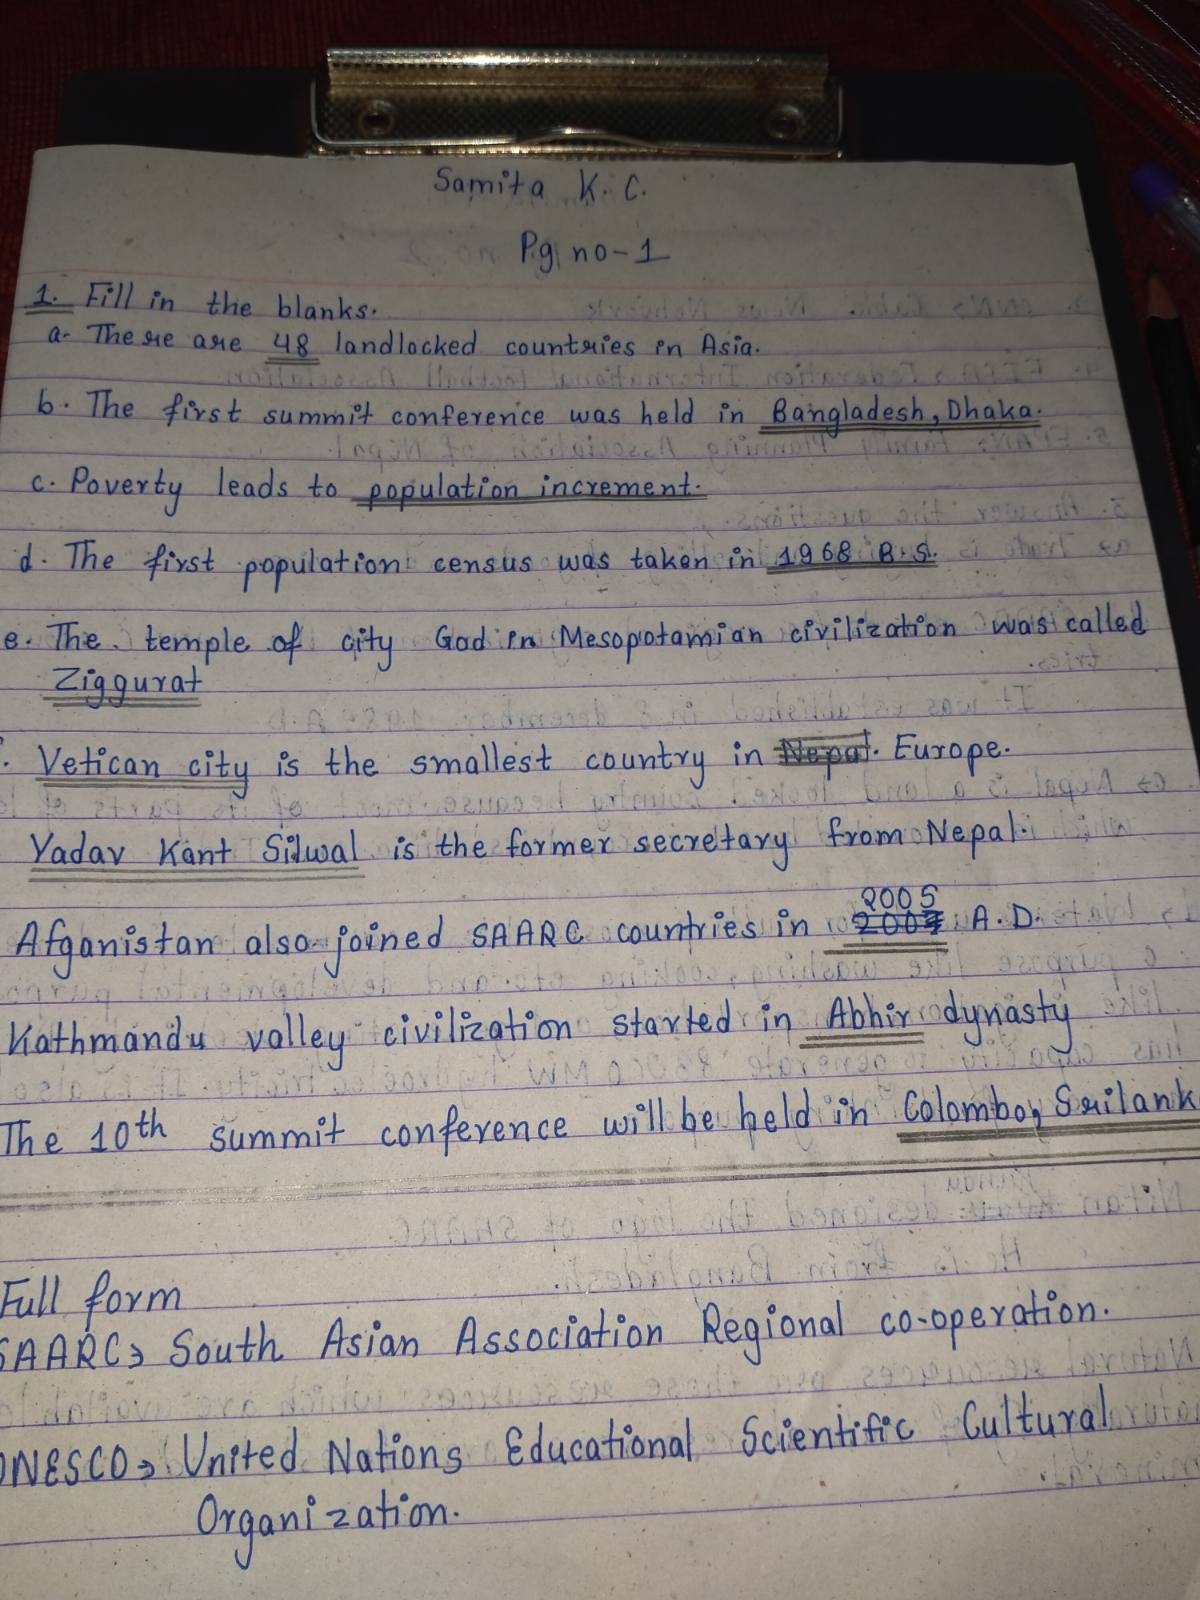 Samita K.C.
Pg no-1
1. Fill in the blanks.
a- There are 48 landlocked countries in Asia.
b. The first summit conference was held in Bangladesh, Dhaka.
c. Poverty leads to population increment.
d. The first population census was taken in 1968 B.S.
e. The temple of city God in Mesopotamian civilization was called
Ziggurat
. Vetican city is the smallest country in Nepal. Europe.
Yadav Kant Silwal is the former secretary from Nepal.
2005
Afganistan also joined SAARC countries in 2007 A.D.
Kathmandu valley civilization started in Abhir dynasty
The 10th summit conference will be held in Colombo, Srilank
Full form
SAARC→ South Asian Association Regional co-operation.
UNESCO→ United Nations Educational Scientific Cultural
Organization.